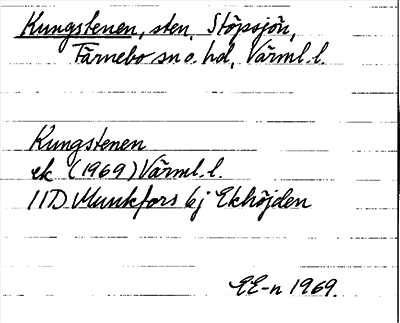 Kungstenen, sten, Stöpsjön,
Färnebo sn o. hd, Värml. l.
Kungstenen
ek (1969) Värml. l.
11D Munkfors 6j Ekhöjden
EE-n 1969.